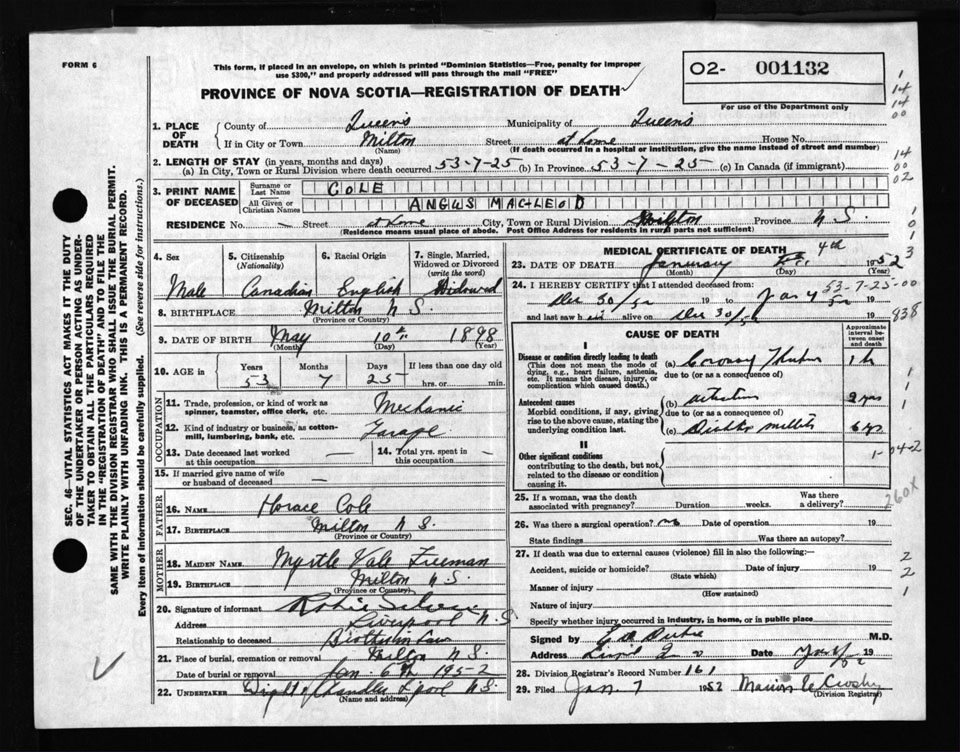 FORM 6
This form, if placed in an envelope, on which is printed "Dominion Statistics—Free, penalty for improper
use $300," and properly addressed will pass through the mail "FREE"
PROVINCE OF NOVA SCOTIA—REGISTRATION OF DEATH
O2- 001132
For use of the Department only
1. PLACE OF DEATH
County of Queens Municipality of Queens
If in City or Town Milton Street at home House No.
(Name) (If death occurred in a hospital or institution, give the name instead of street and number)
2. LENGTH OF STAY (in years, months and days)
(a) In City, Town or Rural Division where death occurred 53-7-25 (b) In Province 53-7-25 (c) In Canada (if immigrant)
3. PRINT NAME OF DECEASED
Surname or Last Name COLE
All Given or Christian Names ANGUS MACLEOD
RESIDENCE No. — Street at home City, Town or Rural Division Milton Province N S.
(Residence means usual place of abode. Post Office Address for residents in rural parts not sufficient)
4. Sex
Male
5. Citizenship (Nationality)
Canadian
6. Racial Origin
English
7. Single, Married, Widowed or Divorced (write the word)
Widowed
8. BIRTHPLACE Milton N S.
(Province or Country)
9. DATE OF BIRTH May 10th 1898
(Month) (Day) (Year)
10. AGE in Years Months Days If less than one day old
53 7 25 hrs. or min.
OCCUPATION
11. Trade, profession, or kind of work as spinner, teamster, office clerk, etc. Mechanic
12. Kind of industry or business, as cotton-mill, lumbering, bank, etc.
13. Date deceased last worked at this occupation —
14. Total yrs. spent in this occupation —
15. If married give name of wife or husband of deceased —
FATHER
16. NAME Horace Cole
17. BIRTHPLACE Milton N S.
(Province or Country)
MOTHER
18. MAIDEN NAME Myrtle Vale Freeman
19. BIRTHPLACE Milton N.S.
(Province or Country)
20. Signature of informant
Address Liverpool N.S.
Relationship to deceased Brother in Law
21. Place of burial, cremation or removal Milton N S.
Date of burial or removal Jan 6th 1952
22. UNDERTAKER Chandler L'pool N.S.
(Name and address)
MEDICAL CERTIFICATE OF DEATH
23. DATE OF DEATH January 4th 1952
(Month) (Day) (Year)
24. I HEREBY CERTIFY that I attended deceased from:
Dec 30/52 19 to Jan 4
53-7-25-00
and last saw him alive on Dec 30/52 19
838
CAUSE OF DEATH
Approximate interval between onset and death
I
Disease or condition directly leading to death
(This does not mean the mode of dying, e.g., heart failure, asthenia, etc. It means the disease, injury, or complication which caused death.)
(a) Coronary 1 h
due to (or as a consequence of)
Antecedent causes
Morbid conditions, if any, giving rise to the above cause, stating the underlying condition last.
(b) 2 yrs
due to (or as a consequence of)
(c) 6 yrs
II
Other significant conditions
contributing to the death, but not related to the disease or condition causing it.
1-04-2
25. If a woman, was the death associated with pregnancy? Duration weeks. Was there a delivery?
260X
26. Was there a surgical operation? no Date of operation 19
State findings Was there an autopsy?
27. If death was due to external causes (violence) fill in also the following:—
Accident, suicide or homicide? Date of injury 19
(State which)
Manner of injury
(How sustained)
Nature of injury
Specify whether injury occurred in industry, in home, or in public place
Signed by M.D.
Address Date 19
28. Division Registrar's Record Number 161
29. Filed Jan. 7 1952 Marion Crosby
(Division Registrar)
SEC. 46—VITAL STATISTICS ACT MAKES IT THE DUTY
OF THE UNDERTAKER OR PERSON ACTING AS UNDER-
TAKER TO OBTAIN ALL THE PARTICULARS REQUIRED
IN THE "REGISTRATION OF DEATH" AND TO FILE THE
SAME WITH THE DIVISION REGISTRAR WHO SHALL ISSUE THE BURIAL PERMIT.
WRITE PLAINLY WITH UNFADING INK. THIS IS A PERMANENT RECORD.
Every item of information should be carefully supplied. (See reverse side for instructions.)